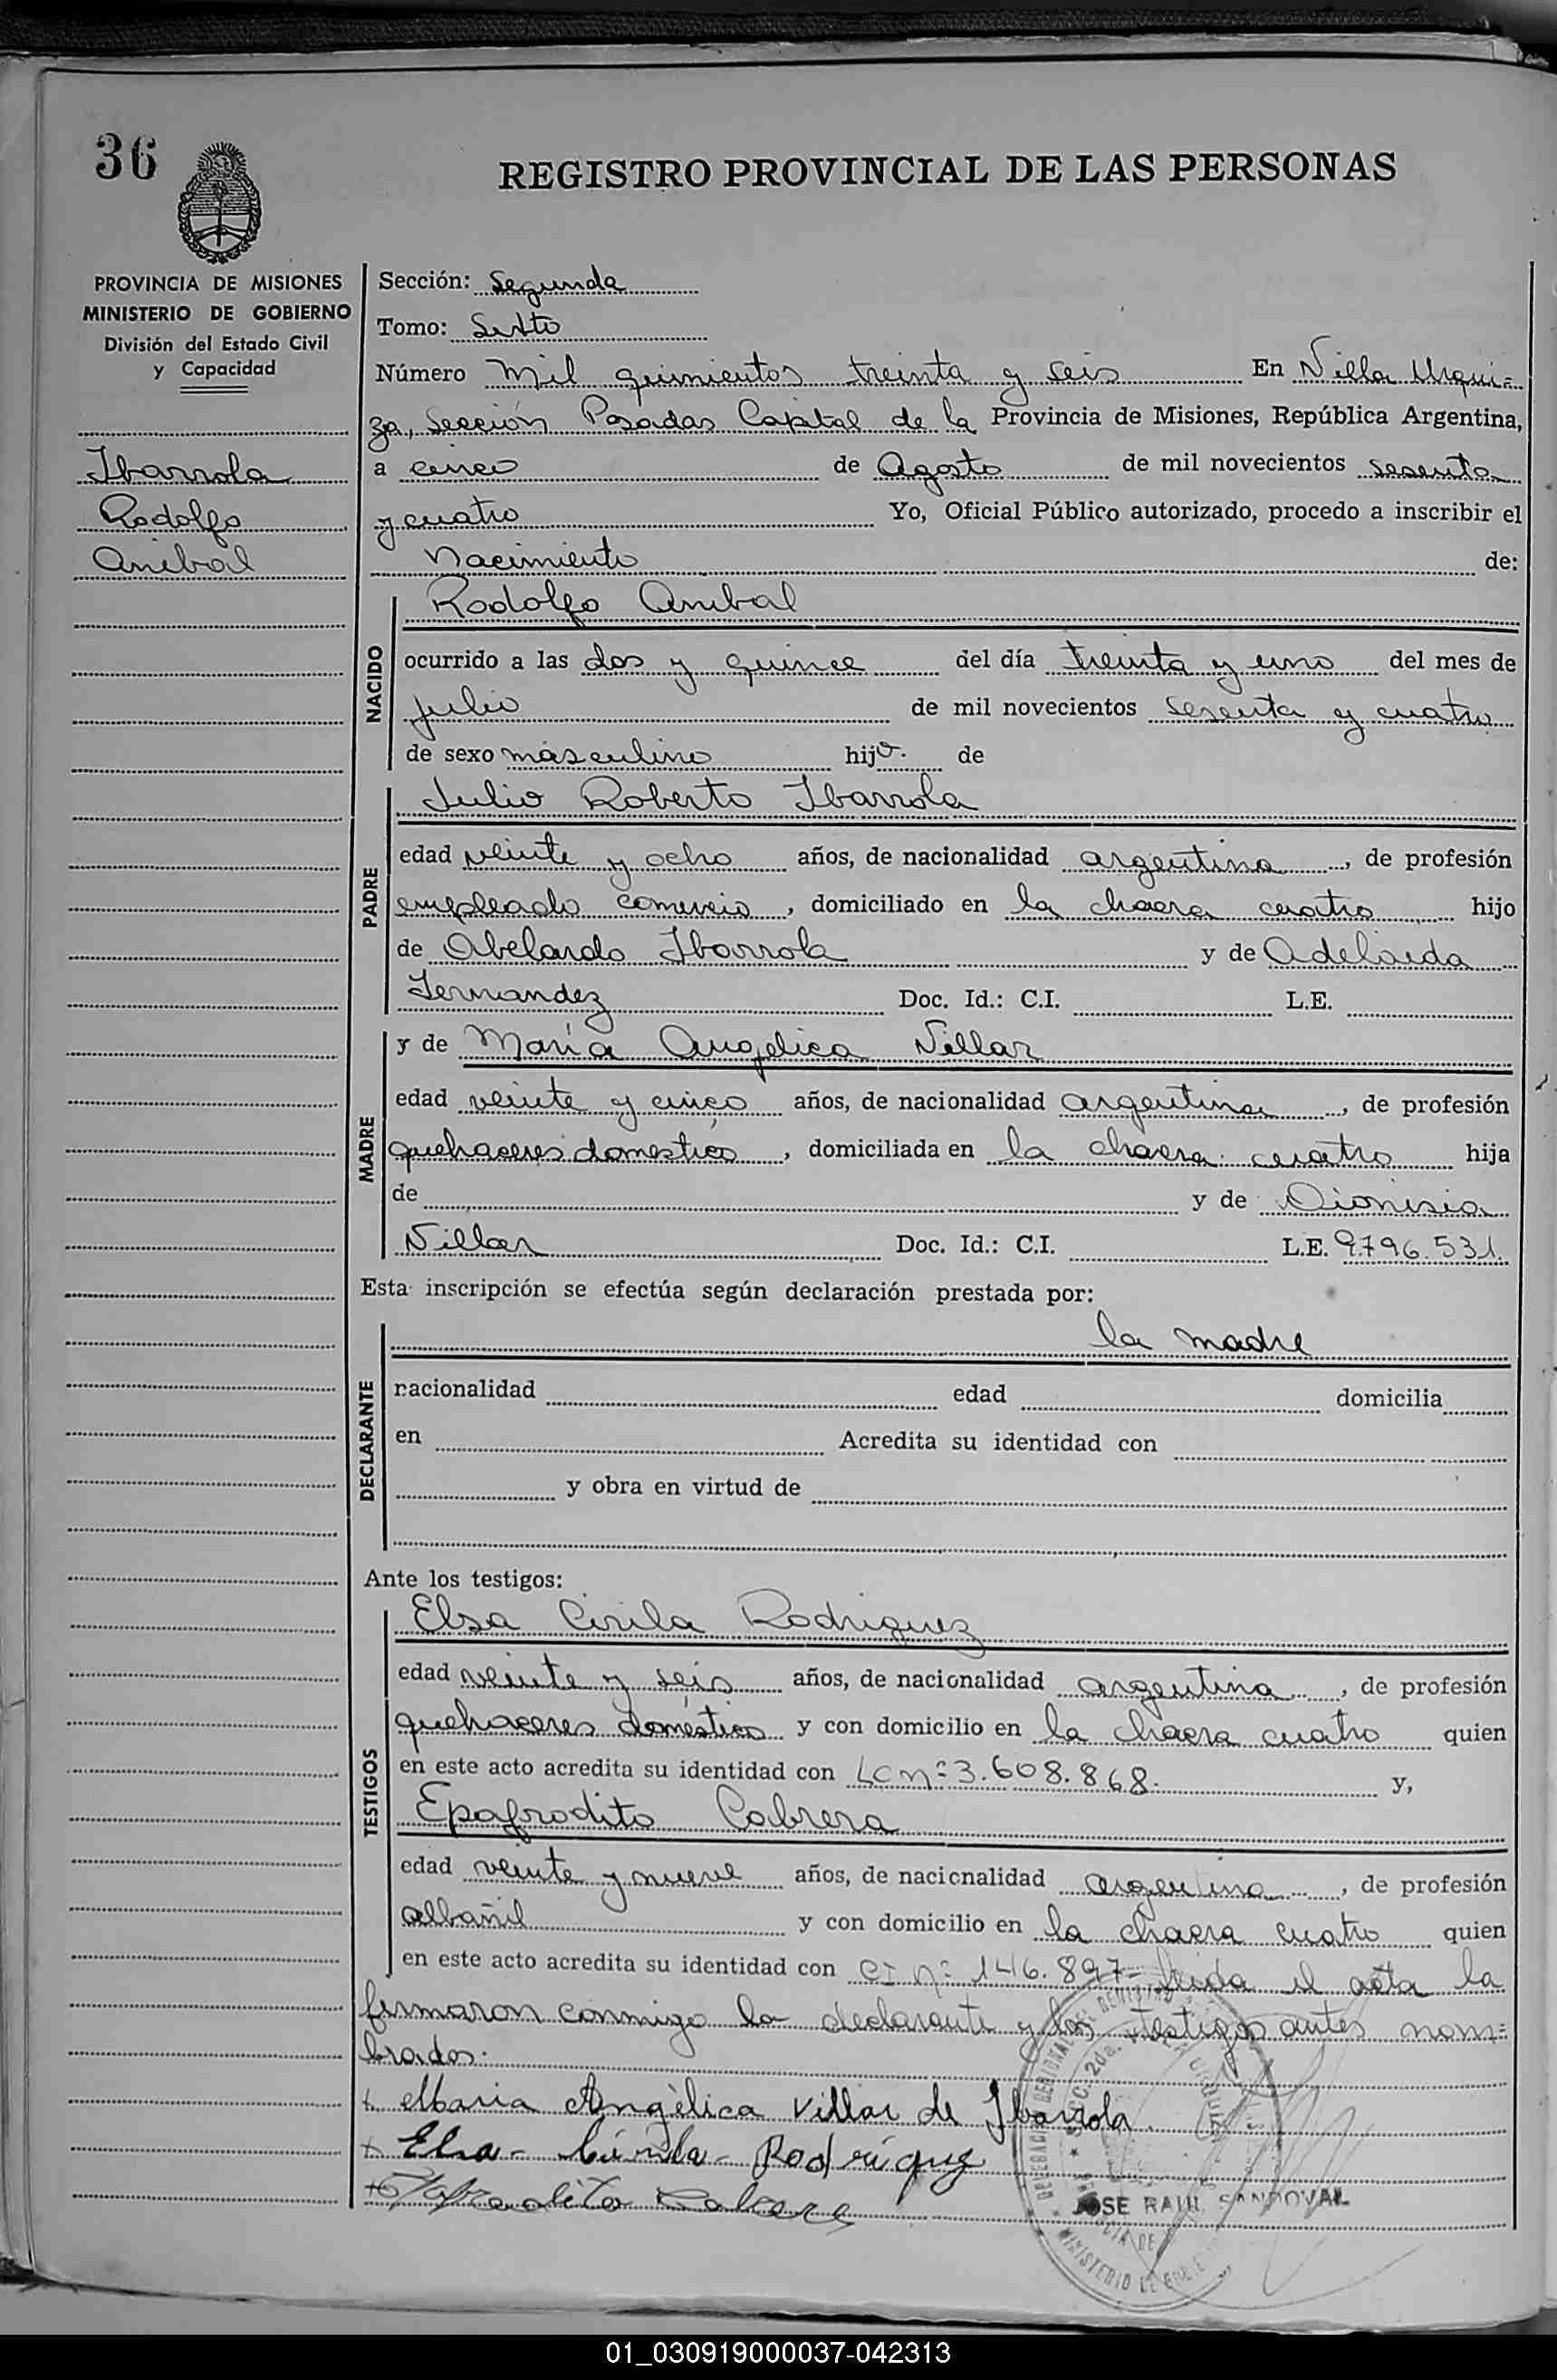 36
REGISTRO PROVINCIAL DE LAS PERSONAS
PROVINCIA DE MISIONES
MINISTERIO DE GOBIERNO
División del Estado Civil
y Capacidad
Ibarrola
Rodolfo
Anibal
Sección: Segunda
Tomo: Sexto
Número Mil quinientos treinta y seis En Villa Urqui=
za, Sección Posadas Capital de la Provincia de Misiones, República Argentina,
a cinco de Agosto de mil novecientos sesenta
y cuatro Yo, Oficial Público autorizado, procedo a inscribir el
Nacimiento de:
NACIDO
Rodolfo Anibal
ocurrido a las dos y quince del día treinta y uno del mes de
julio de mil novecientos sesenta y cuatro
de sexo masculino hijo. de
PADRE
Julio Roberto Ibarrola
edad veinte y ocho años, de nacionalidad argentina, de profesión
empleado comercio, domiciliado en la chacra cuatro hijo
de Abelardo Ibarrola y de Adelaida
Fernandez Doc. Id.: C.I. L.E.
MADRE
y de María Angelica Villar
edad veinte y cinco años, de nacionalidad argentina, de profesión
quehaceres domestico, domiciliada en la chacra cuatro hija
de y de Dionisia
Villar Doc. Id.: C.I. L.E. 9.796.531.
Esta inscripción se efectúa según declaración prestada por:
DECLARANTE
la madre
nacionalidad edad domicilia
en Acredita su identidad con
y obra en virtud de
Ante los testigos:
TESTIGOS
Elsa Cirila Rodriguez
edad veinte y seis años, de nacionalidad argentina, de profesión
quehaceres domésticos y con domicilio en la chacra cuatro quien
en este acto acredita su identidad con LC nº 3.608.868. y,
Epafrodito Cabrera
edad veinte y nueve años, de nacionalidad argentina, de profesión
albañil y con domicilio en la chacra cuatro quien
en este acto acredita su identidad con CI nº 146.897= leida el acta la
firmaron conmigo la declarante y los testigos antes nom=
brados.
Maria Angèlica Villar de Ibarrola
Elsa - Cirila - Rodríguez
Epafrodito Cabrera
JOSE RAUL SANDOVAL
01_030919000037-042313